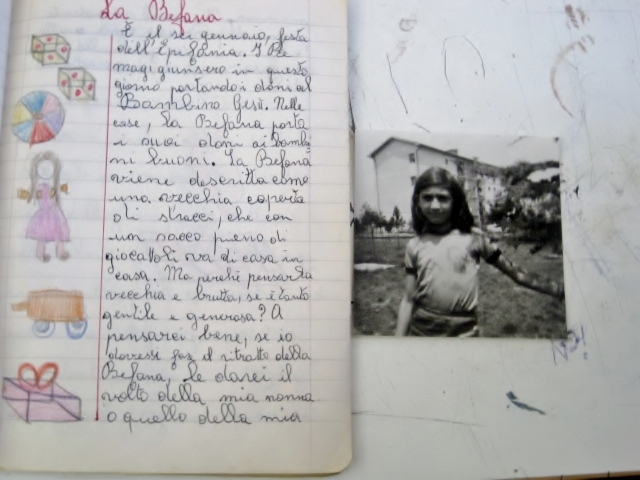 La Befana
È il sei gennaio, festa
dell'Epifania. I Re
magi giunsero in questo
giorno portando i doni al
Bambino Gesù. Nelle
case, la Befana porta
i suoi doni ai bambi
ni buoni. La Befana
viene descritta come
una vecchia coperta
di stracci, che con
un sacco pieno di
giocattoli va di casa in
casa. Ma perché pensarla
vecchia e brutta, se è tanto
gentile e generosa? A
pensarci bene, se io
dovessi far il ritratto della
Befana, le darei il
volto della mia nonna
o quello della mia
NO!